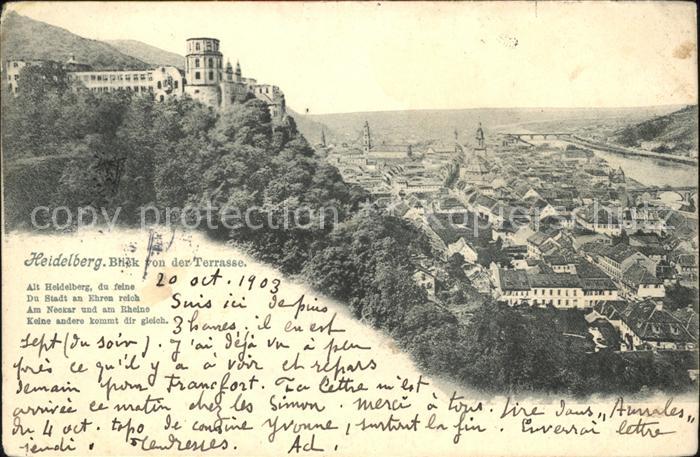 copyright protection
Heidelberg. Blick von der Terrasse.
Alt Heidelberg, du feine
Du Stadt an Ehren reich
Am Neckar und am Rheine
Keine andere kommt dir gleich.
20 oct. 1903
Suis ici depuis
3 heures, il en est
sept (du soir). J'ai déjà vu à peu
près ce qu'il y a à voir et repars
demain pour Francfort. Ta lettre m'est
arrivée ce matin chez les Simon. Merci à tous. Lire dans "Annales"
du 4 oct. topo de cousine Yvonne, surtout la fin. Enverrai lettre
jeudi. Tendresses. Ad.